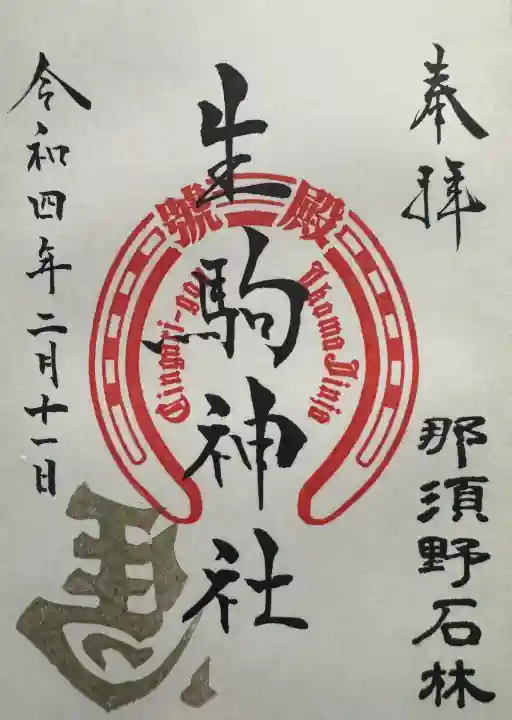 奉拝
那須野石林
生駒神社
殿號
Ikoma Jinja
令和四年二月十一日
馬